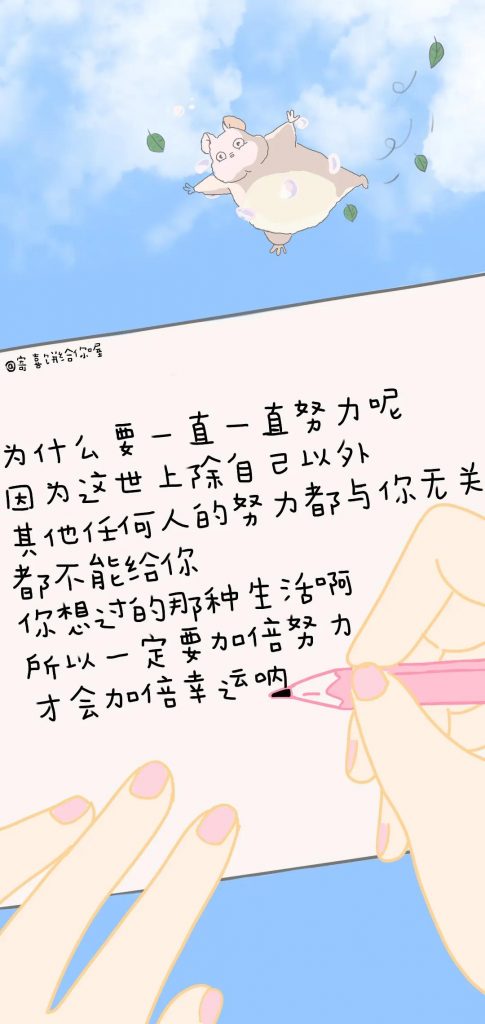 @寄喜饼给你喔
为什么要一直一直努力呢
因为这世上除自己以外
其他任何人的努力都与你无关
都不能给你
你想过的那种生活啊
所以一定要加倍努力
才会加倍幸运呐